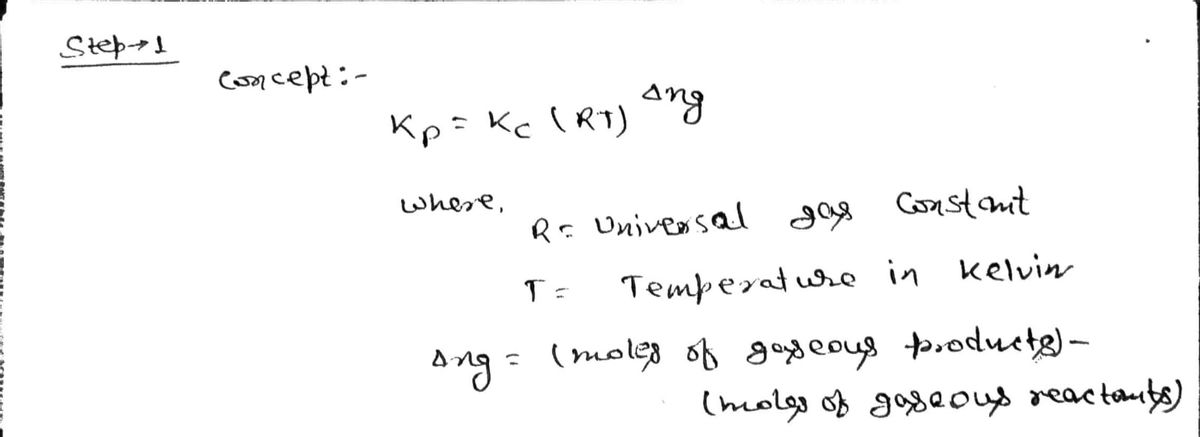 Step→1
Concept:-
Kp = Kc (RT)^Δng
where,
R = Universal gas Constant
T = Temperature in kelvin
Δng = (moles of gaseous products) -
(moles of gaseous reactants)